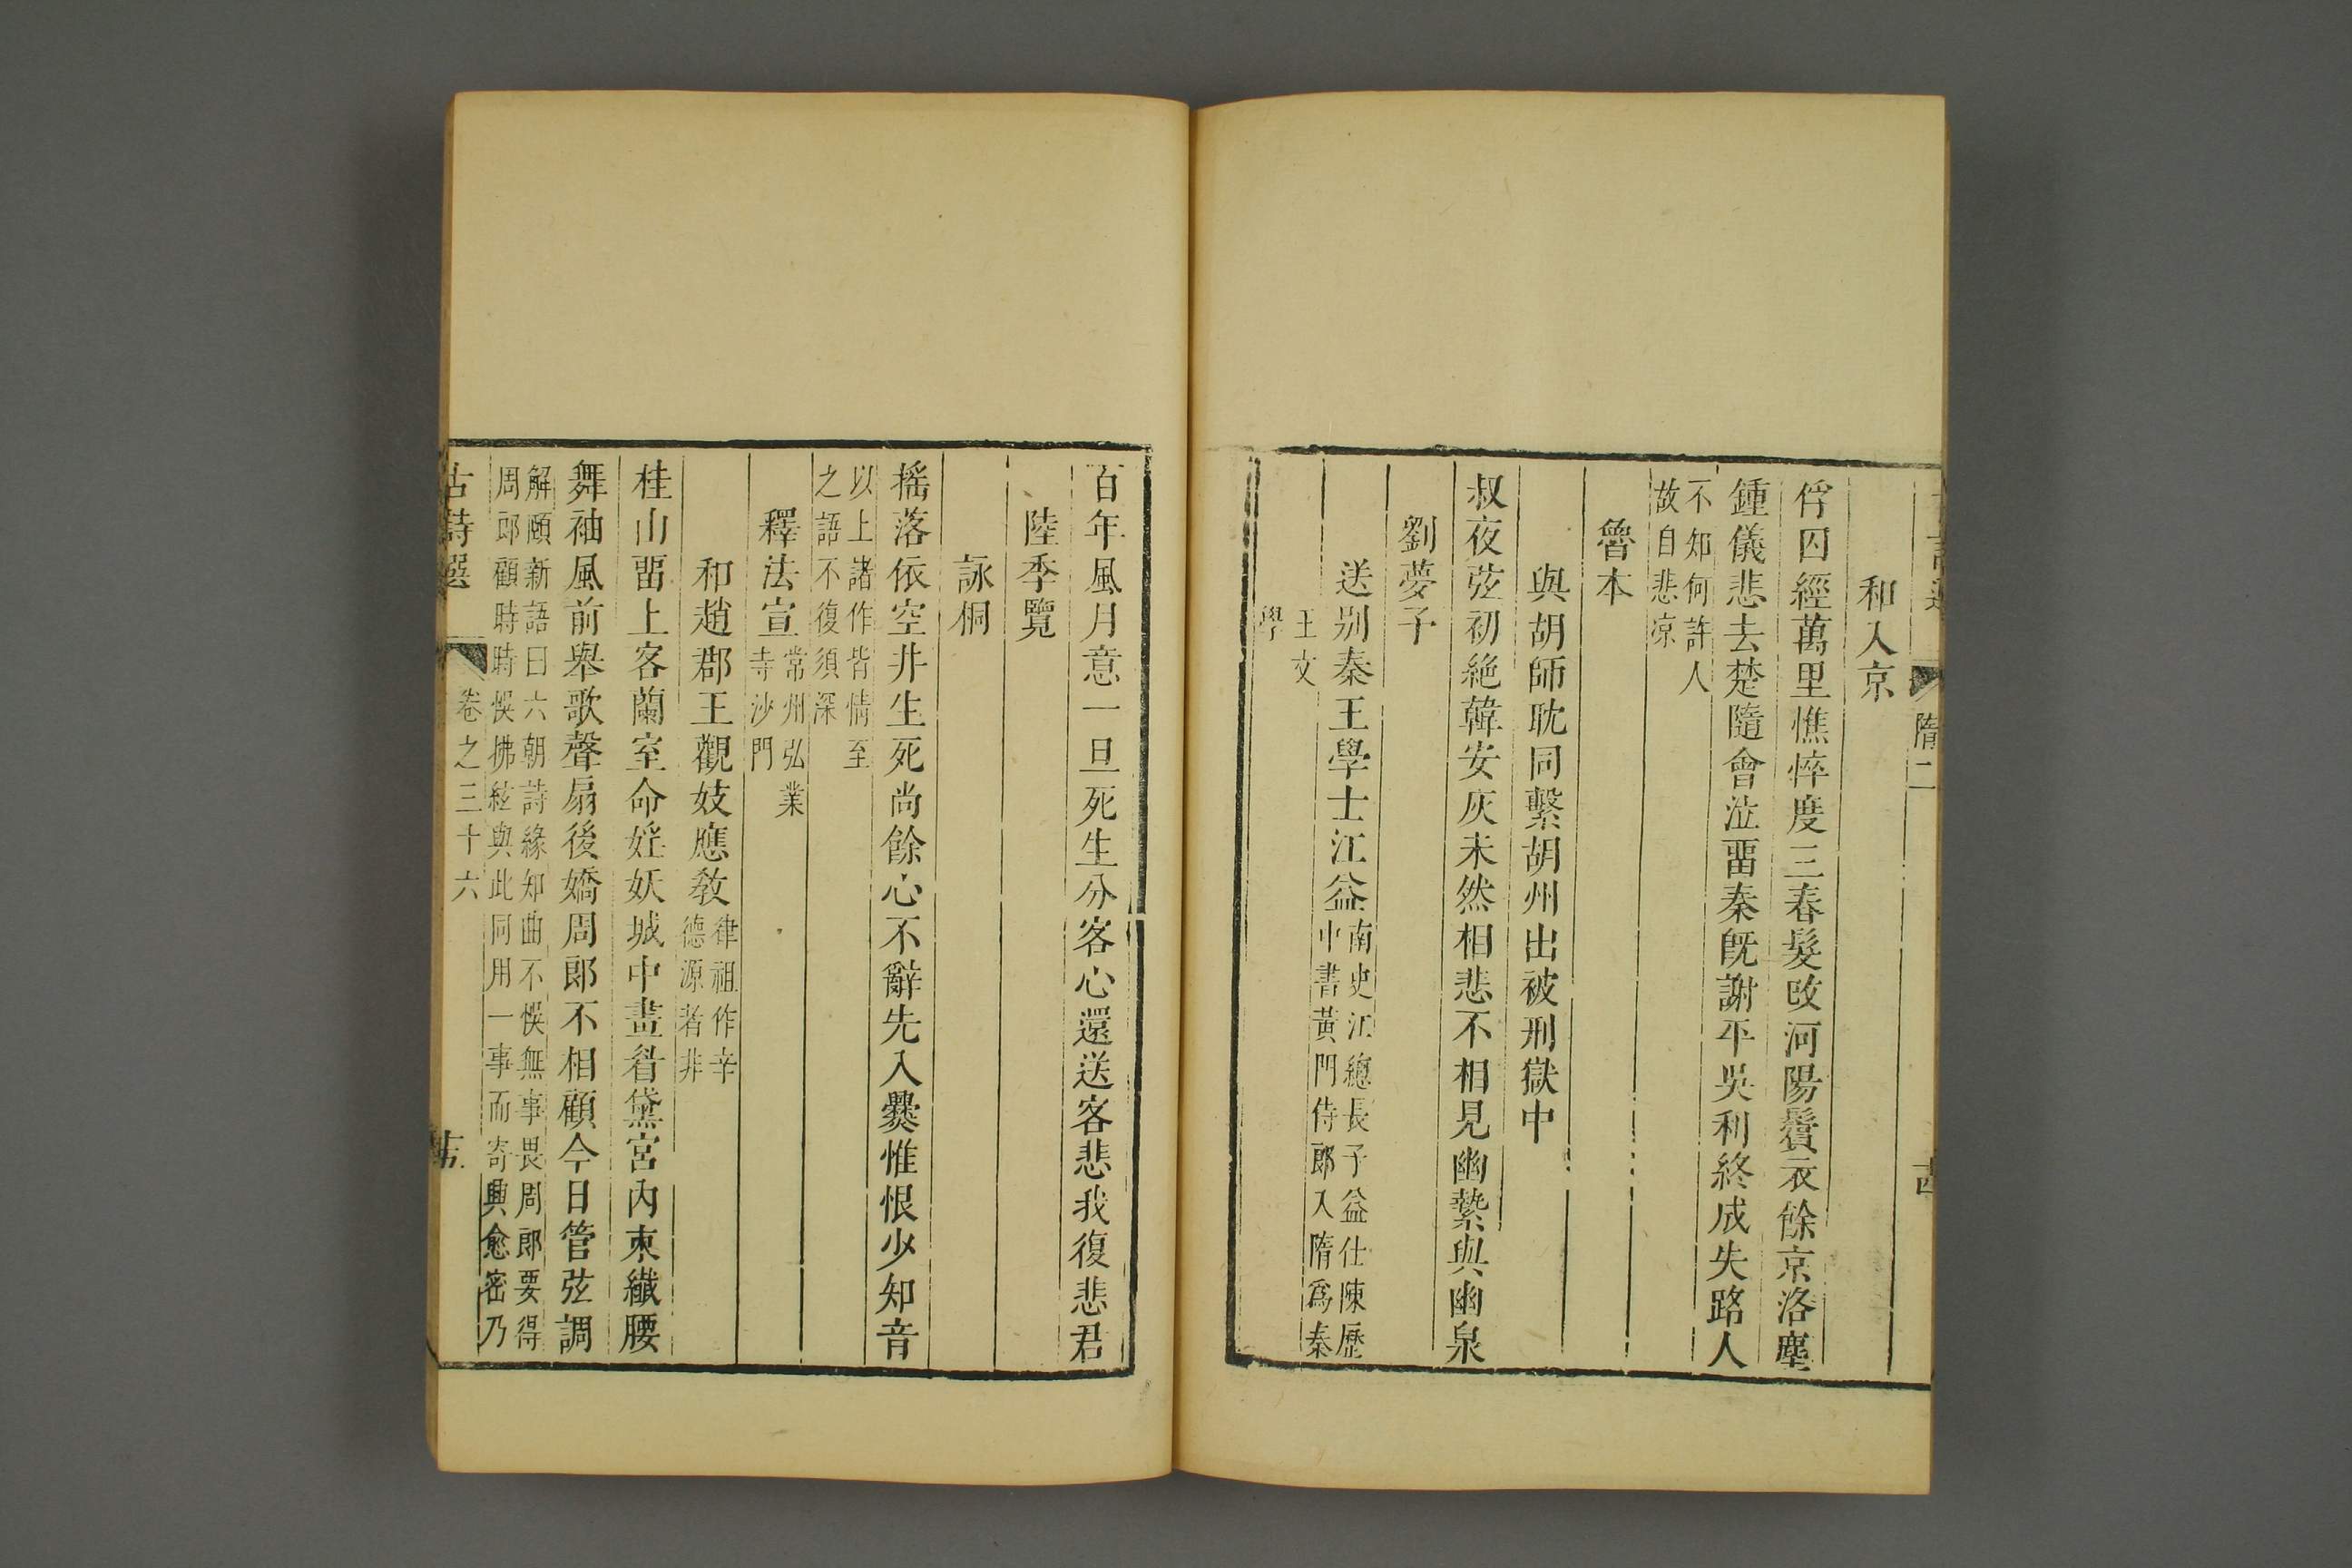 隋二
和入京
俘囚經萬里憔悴度三春髮改河陽鬢衣餘京洛塵
鍾儀悲去楚隨會泣畱秦旣謝平吳利終成失路人
不知何許人
故自悲凉
魯本
與胡師耽同繫胡州出被刑獄中
叔夜弦初絶韓安灰未然相悲不相見幽縶與幽泉
劉夢子
送別秦王學士江益
南史江總長子益仕陳歷
中書黃門侍郎入隋爲秦
王文
學
百年風月意一旦死生分客心還送客悲我復悲君
陸季覽
詠桐
搖落依空井生死尚餘心不辭先入爨惟恨少知音
以上諸作皆情至
之語不復須深
釋法宣
常州弘業
寺沙門
和趙郡王觀妓應敎
律祖作辛
德源者非
桂山畱上客蘭室命妊妖城中畫眉黛宮內束纖腰
舞袖風前舉歌聲扇後嬌周郎不相顧今日管弦調
解頤新語曰六朝詩緣知曲不悞無事畏周郎要得
周郎顧時時悞拂絃與此同用一事而寄興愈密乃
古詩選
卷之三十六